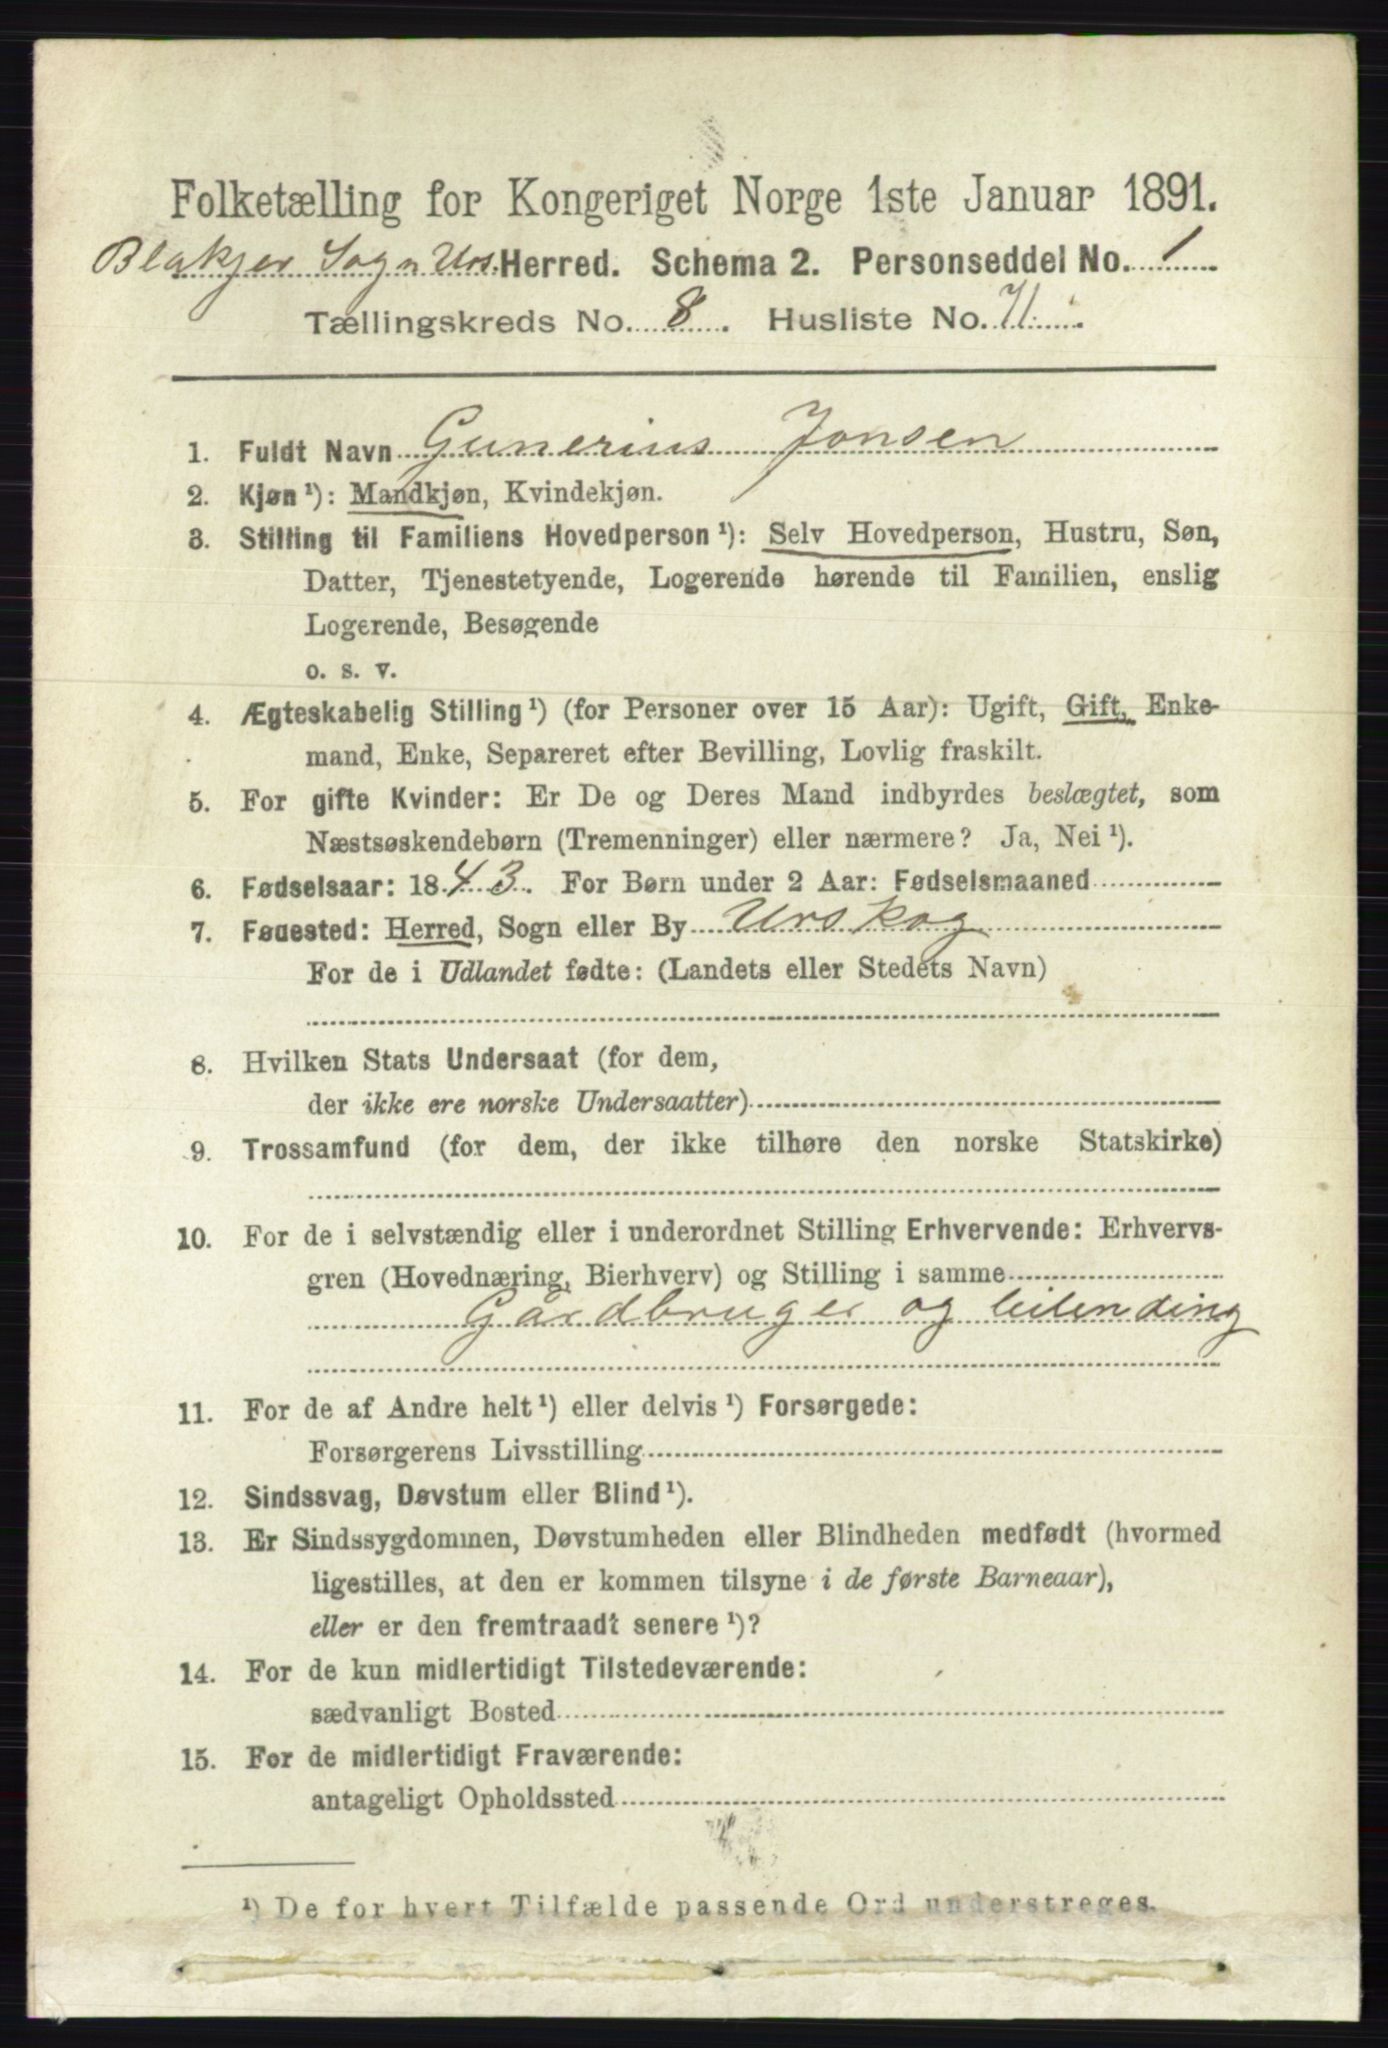 Folketælling for Kongeriget Norge 1ste Januar 1891.
Blakjer Sogn Urs. Herred. Schema 2. Personseddel No. 1
Tællingskreds No. 8. Husliste No. 71.
1. Fuldt Navn Gunerius Jonsen
2. Kjøn ¹): Mandkjøn, Kvindekjøn.
3. Stilling til Familiens Hovedperson ¹): Selv Hovedperson, Hustru, Søn,
Datter, Tjenestetyende, Logerende hørende til Familien, enslig
Logerende, Besøgende
o. s. v.
4. Ægteskabelig Stilling ¹) (for Personer over 15 Aar): Ugift, Gift, Enke-
mand, Enke, Separeret efter Bevilling, Lovlig fraskilt.
5. For gifte Kvinder: Er De og Deres Mand indbyrdes beslægtet, som
Næstsøskendebørn (Tremenninger) eller nærmere? Ja, Nei ¹).
6. Fødselsaar: 1843. For Børn under 2 Aar: Fødselsmaaned
7. Fødested: Herred, Sogn eller By Urskog
For de i Udlandet fødte: (Landets eller Stedets Navn)
8. Hvilken Stats Undersaat (for dem,
der ikke ere norske Undersaatter)
9. Trossamfund (for dem, der ikke tilhøre den norske Statskirke)
10. For de i selvstændig eller i underordnet Stilling Erhvervende: Erhvervs-
gren (Hovednæring, Bierhverv) og Stilling i samme
Gårdbruger og leilending
11. For de af Andre helt ¹) eller delvis ¹) Forsørgede:
Forsørgerens Livsstilling
12. Sindssvag, Døvstum eller Blind ¹).
13. Er Sindssygdommen, Døvstumheden eller Blindheden medfødt (hvormed
ligestilles, at den er kommen tilsyne i de første Barneaar),
eller er den fremtraadt senere ¹)?
14. For de kun midlertidigt Tilstedeværende:
sædvanligt Bosted
15. For de midlertidigt Fraværende:
antageligt Opholdssted
¹) De for hvert Tilfælde passende Ord understreges.